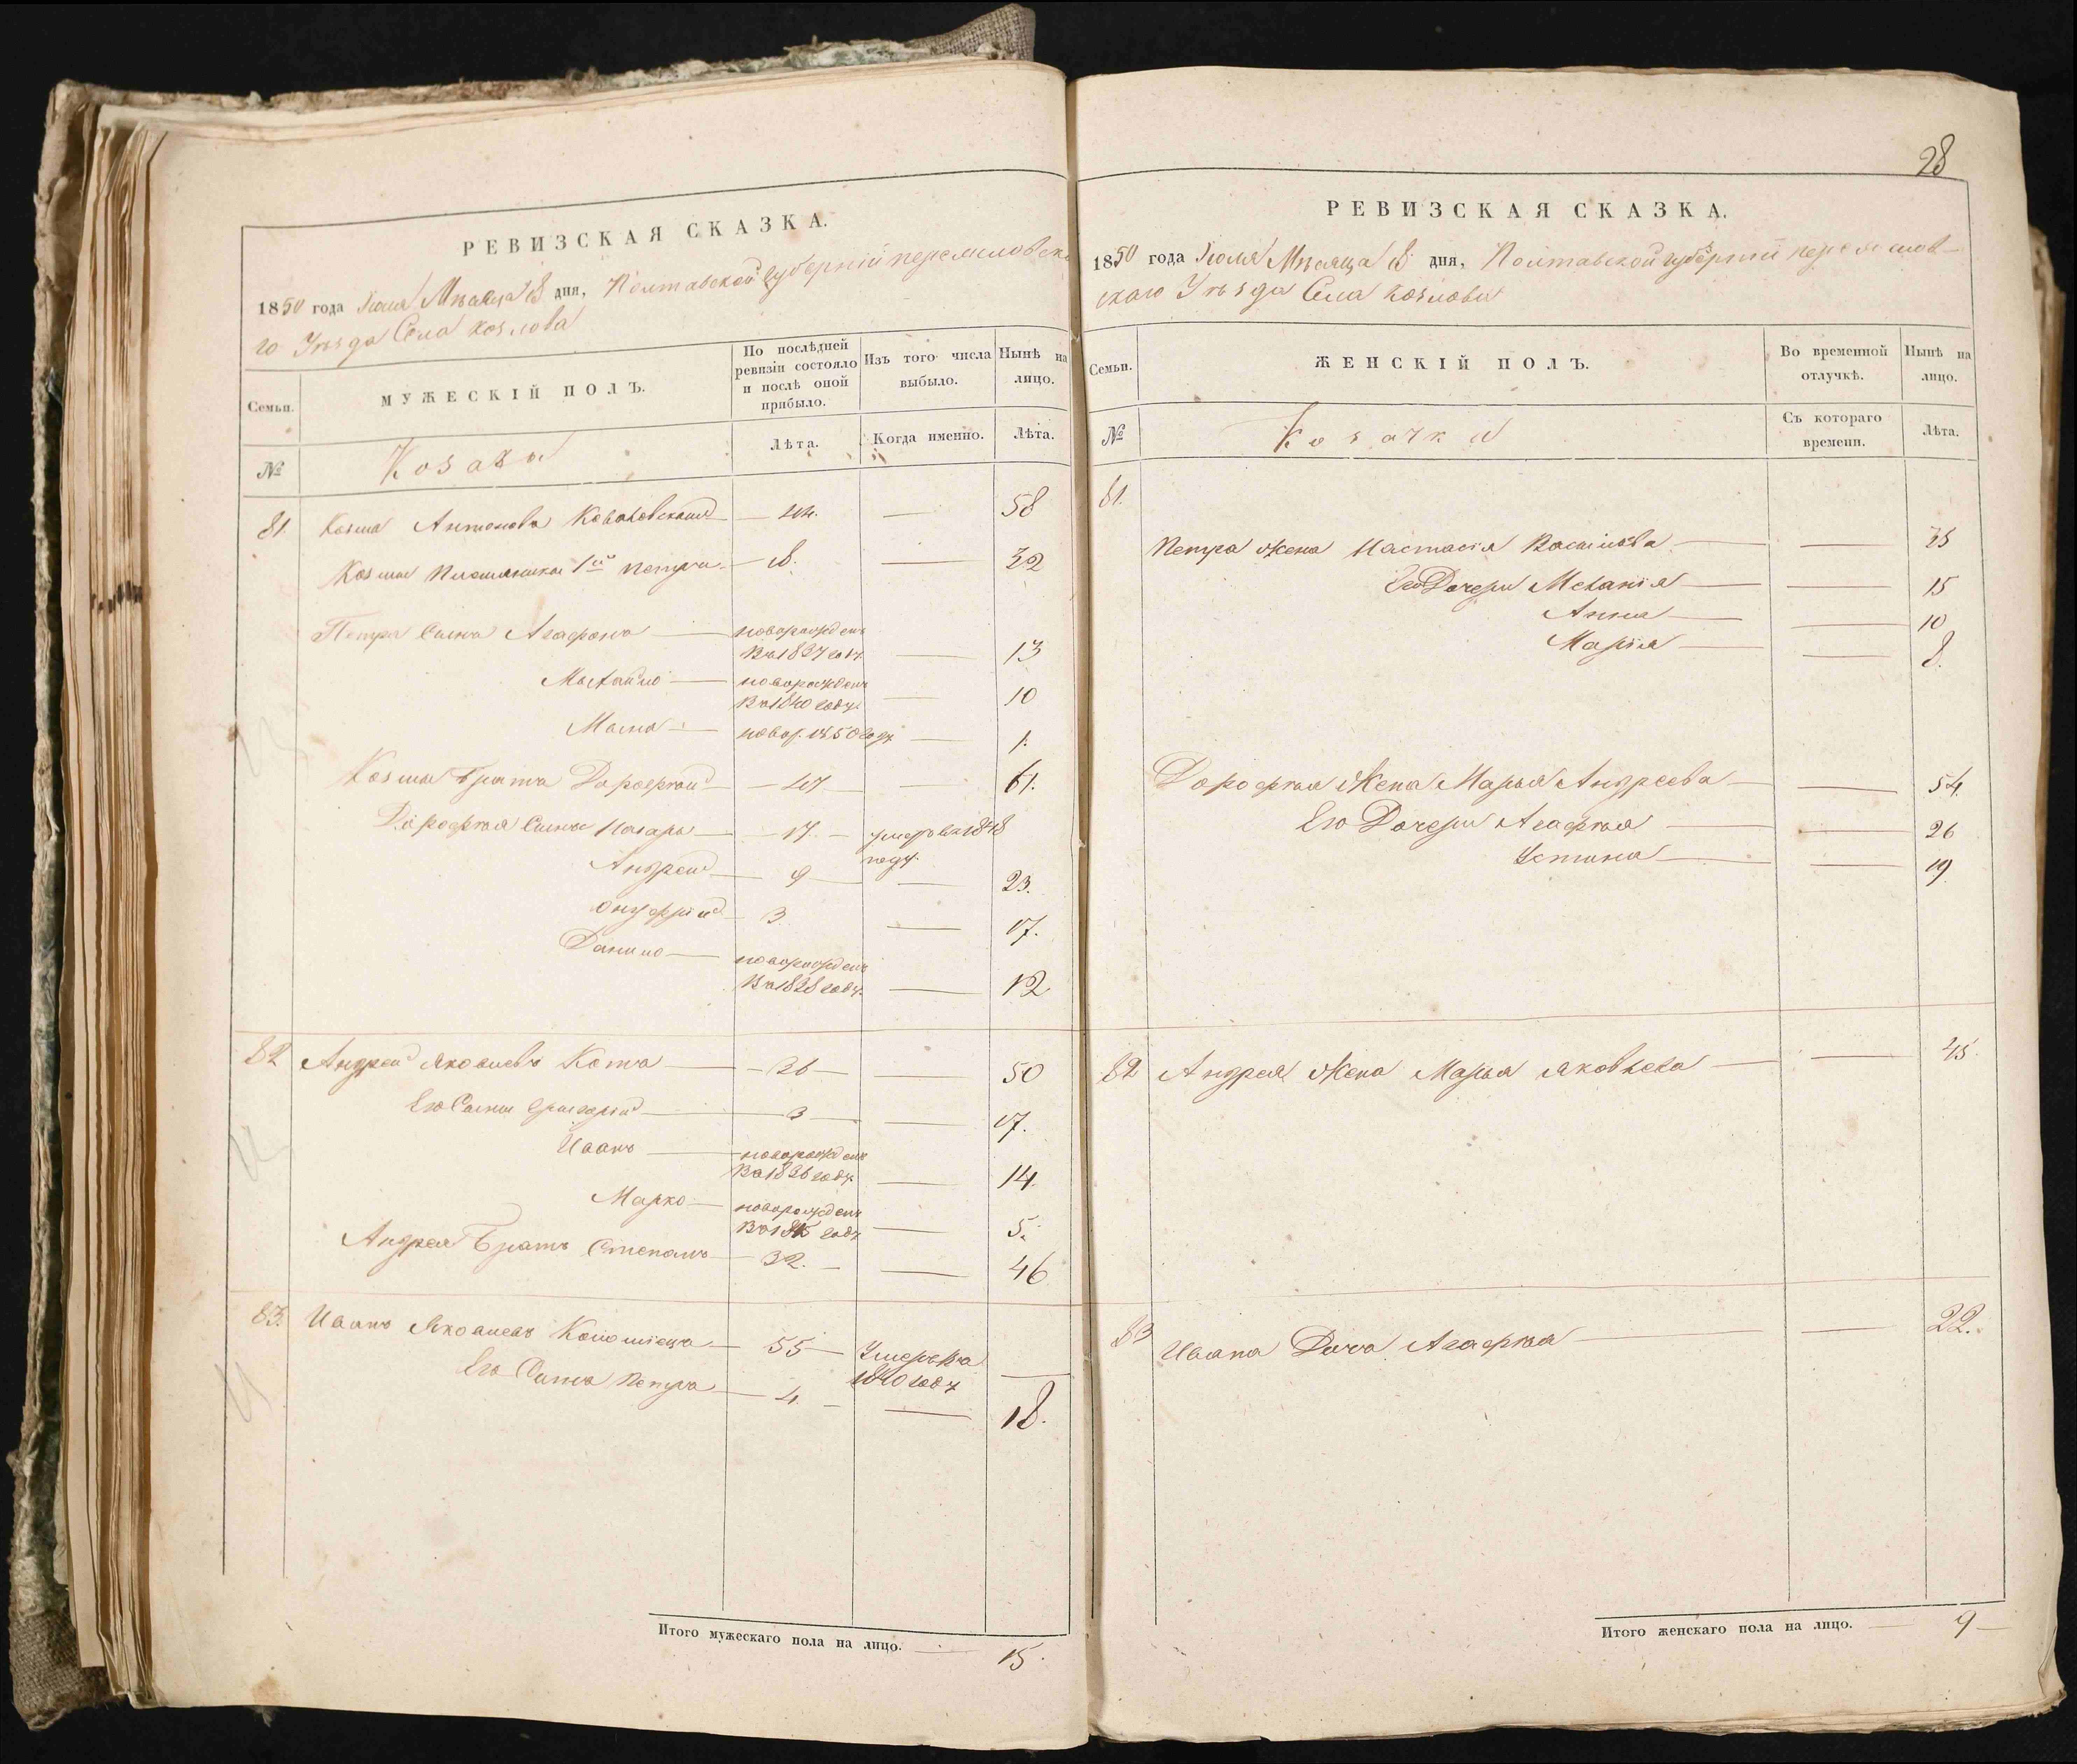 РЕВИЗСКАЯ СКАЗКА.
1850 года Іюля Мѣсяца 8 дня, Полтавской губерніи переяслов ска
го Уѣзда Села козлова
Семьи.
МУЖЕСКІЙ ПОЛЪ.
По послѣдней ревизіи состояло и послѣ оной прибыло.
Изъ того числа выбыло.
Нынѣ на лицо.
№
Козаки
Лѣта.
Когда именно.
Лѣта.
81. Козма Антоновъ — 44. — 58
Козмы племянникъ 1й петръ — 18. — 32
Петра Сынъ Агафонъ — новорожденъ
Въ 1837 году. — 13
Михайло — новорожденъ
Въ 1840 году. — 10
новор. 1850 году — 1.
Козмы Братъ Дорофѣй — 47 — 61.
Дорофѣя Сынъ Назаръ — 17. — умеръ въ 1848
году.
Андрей — 9 — 23.
Онуфрій — 3. — 17.
Данило — новорожденъ
Въ 1838 году. — 12
82 Андрей Яковлевъ Кота — 26 — 50
Его Сынъ Григорій — 3 — 17.
Иванъ — новорожденъ
Въ 1836 году. — 14.
Марко — новорожденъ
Въ 1845 году — 5.
Андрея Братъ Степанъ — 32. — 46
83. Иванъ Яковлевъ — 55 — Умеръ Въ
1840 году —
Его Сынъ Петръ — 4. — 18.
Итого мужескаго пола на лицо. — 15.
28
РЕВИЗСКАЯ СКАЗКА.
1850 года Іюля Мѣсяца 8 дня, Полтавской губерніи переяслов-
скаго Уѣзда Села Козлова
Семьи.
ЖЕНСКІЙ ПОЛЪ.
Во временной отлучкѣ.
Нынѣ на лицо.
№
Козачки
Съ котораго времени.
Лѣта.
81.
Петра Жена Настасія Васильева — — 35
Его Дочери Меланія — — 15
Анна — — 10
Марія — — 8.
Дорофѣя Жена Марья Андреева — — 54.
Его Дочери Агафія — — 26
Устина — — 19
82 Андрея Жена Марья Яковлева — — 45.
83 Ивана Дочь Агафія — — 22.
Итого женскаго пола на лицо. — 9 —